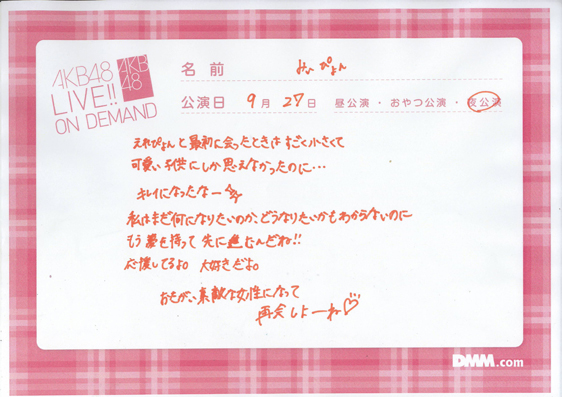 AKB48
LIVE!!
ON DEMAND
AKB
48
名前 みぃぴょん
公演日 9月27日 昼公演・おやつ公演・夜公演
えれぴょんと最初に会ったときはすごく小さくて
可愛い子供にしか思えなかったのに…
キレイになったなー
私はまだ何になりたいのか、どうなりたいかもわからないのに
もう夢を持って先に進むんだね!!
応援してるよ。大好きだよ。
おたがい、素敵な女性になって
再会しよーね♡
DMM.com